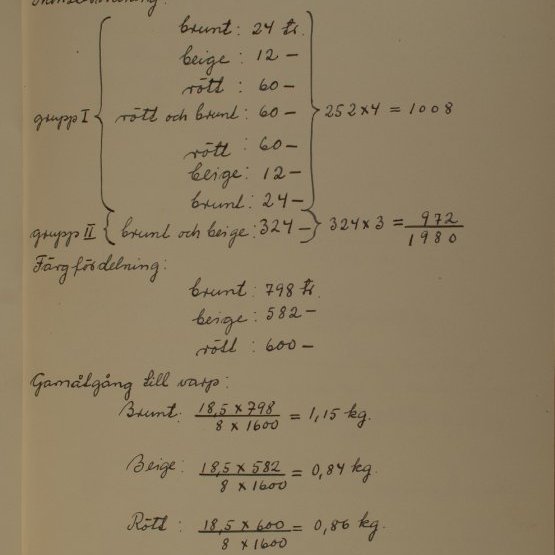 brunt: 24 tr.
beige: 12 -
rött : 60 -
grupp I rött och brunt: 60 - 252 x 4 = 1008
rött : 60 -
beige: 12 -
brunt: 24 -
grupp II brunt och beige: 324 - 324 x 3 = 972
1980
Färgfördelning:
brunt: 798 tr.
beige: 582 -
rött : 600 -
Garnåtgång till varp:
Brunt: 18,5 x 798 / 8 x 1600 = 1,15 kg.
Beige: 18,5 x 582 / 8 x 1600 = 0,84 kg.
Rött : 18,5 x 600 / 8 x 1600 = 0,86 kg.